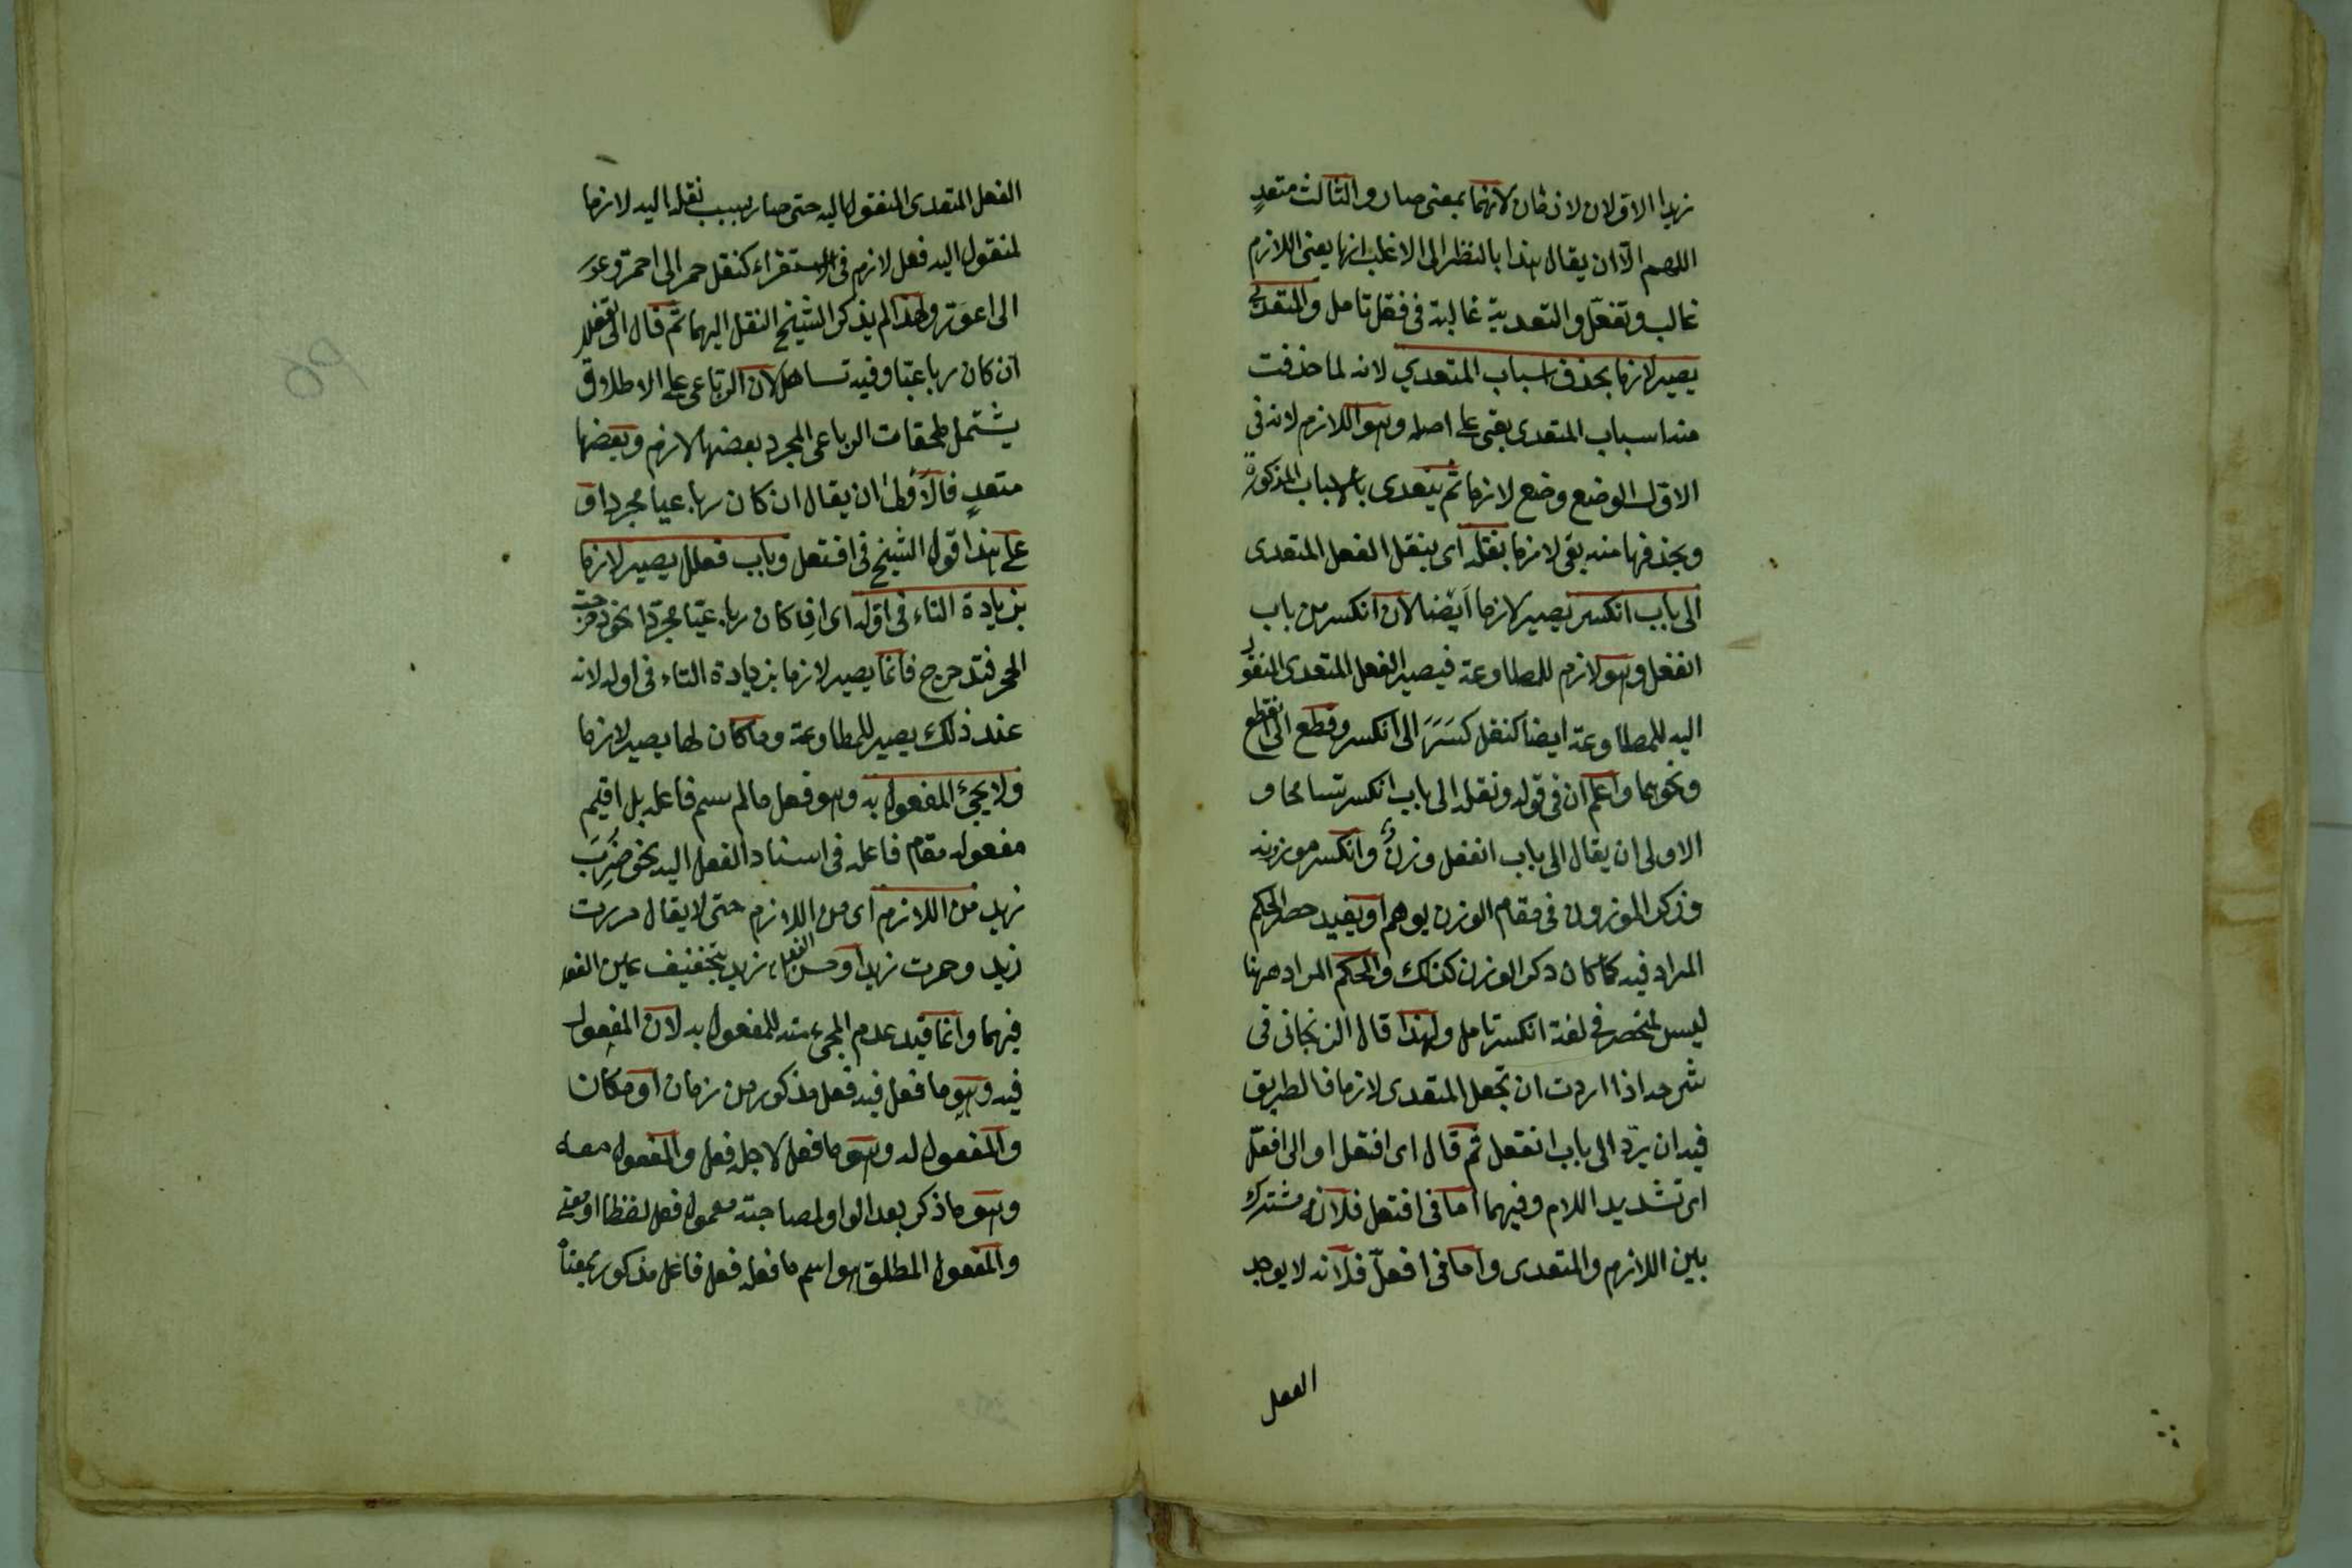 زيدا الاولان لازمان لانهما بمعنى صار والثالث متعدٍ
اللهم الّا ان يقال هذا بالنظر الى الاغلب انها يعنى اللازم
غالب وتفعّل والتعدية غالبة فى فعّل تامل والمتعدي
يصير لازما بحذف اسباب المتعدي لانه لما حذفت
منه اسباب المتعدى بقى على اصله وهو اللازم لانه فى
الاول الوضع وضع لازما ثم يتعدى بالاسباب المذكورة
وبحذفها منه بقى لازما بنقله اى بنقل الفعل المتعدى
الى باب انكسر يصير لازما ايضا لان انكسر من باب
انفعل وهو لازم للمطاوعة فيصير الفعل المتعدى المنقول
اليه للمطاوعة ايضا كنقل كَسَرَ الى انكسر وقطع الى انقطع
ونحوهما واعلم ان فى قوله ونقله الى باب انكسر تسامحا و
الاولى ان يقال الى باب انفعل وزنٌ وانكسر موزونه
وذكر الموزون فى مقام الوزن يوهم او يفيد حصر الحكم
المراد فيه كما كان ذكر الوزن كذلك والحكم المراد ههنا
ليس لمنحصر فى لغة انكسر تامل ولهذا قال الزنجانى فى
شرحه اذا اردت ان تجعل المتعدى لازما فالطريق
فيه ان يردّ الى باب انفعل ثم قال اى افتعل او الى افعلّ
اى تشديد اللام وفيهما اما فى افتعل فلانه مشترك
بين اللازم والمتعدى واما فى افعلّ فلانه لا يوجد
الفعل
الفعل المتعدى المنقول اليه حتى صار بسبب نقله اليه لازما
لمنقول اليه فعل لازم فى الاستقراء كنقل حمر الى احمرّ وعور
الى اعوَرّ ولهذا لم يذكر الشيخ النقل اليهما ثم قال الى تفعلل
ان كان رباعيّا وفيه تساهل لان الرباعى على الاطلاق
يشتمل ملحقات الرباعى المجرد بعضها لازم وبعضها
متعدٍ فالأَولى ان يقال ان كان رباعيا مجردا و
على هذا قول الشيخ فى افتعل وباب فعلل يصير لازما
بزيادة التاء فى اوله اى اذا كان رباعيّا مجرّدا نحو دحرجت
الحجر فتدحرج فانما يصير لازما بزيادة التاء فى اوله لانه
عند ذلك يصير للمطاوعة وما كان لها يصير لازما
ولا يجئ المفعول به وهو فعل مالم يسم فاعله بل اقيم
مفعوله مقام فاعله فى اسناد الفعل اليه نحو ضُرِبَ
زيد من اللازم اى من اللازم حتى لا يقال مررت
زيد وحمرت زيدا وحسن الفعل زيد بتخفيف عين الفعل
فيهما وانما قيد عدم المجئ منه للمفعول به لان المفعول
فيه وهو ما فعل فيه فعل مذكور من زمان او مكان
والمفعول له وهو ما فعل لاجله فعل والمفعول معه
وهو ما ذكر بعد الواو لمصاحبة معمول فعل لفظا او معنى
والمفعول المطلق هو اسم ما فعله فعل فاعل مذكور بمعناه